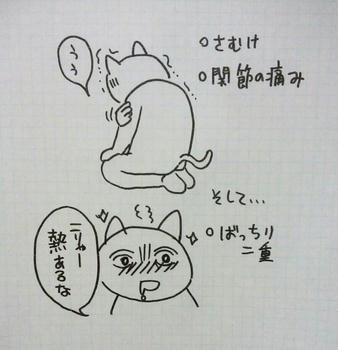 うぅ
○さむけ
○関節の痛み
そして…
○ばっちり
二重
こりゃー
熱あるな